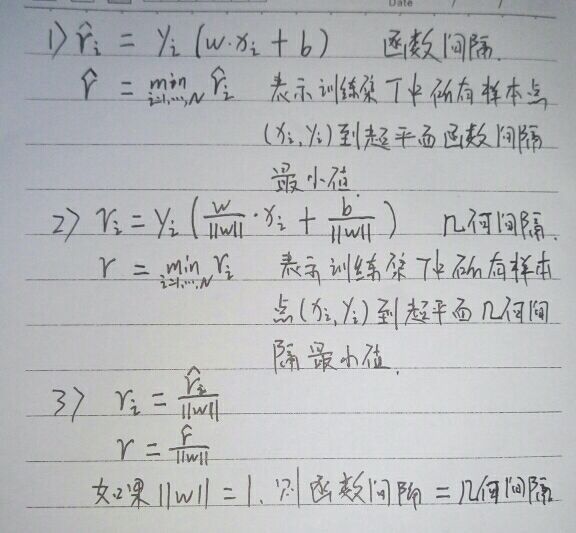 Date / /
1) r̂ᵢ = yᵢ (w·xᵢ + b) 函数间隔.
r̂ = min_{i=1,…,N} r̂ᵢ 表示训练集T中所有样本点
(xᵢ, yᵢ)到超平面函数间隔
最小值.
2) rᵢ = yᵢ (w/||w||·xᵢ + b/||w||) 几何间隔.
r = min_{i=1,…,N} rᵢ 表示训练集T中所有样本
点(xᵢ, yᵢ)到超平面几何间
隔最小值.
3) rᵢ = r̂ᵢ/||w||
r = r̂/||w||
如果||w|| = 1, 则函数间隔 = 几何间隔